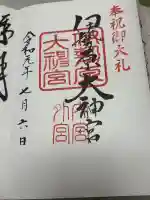 奉祝御大礼
伊勢原大神宮
外宮
大神宮
令和元年七月六日